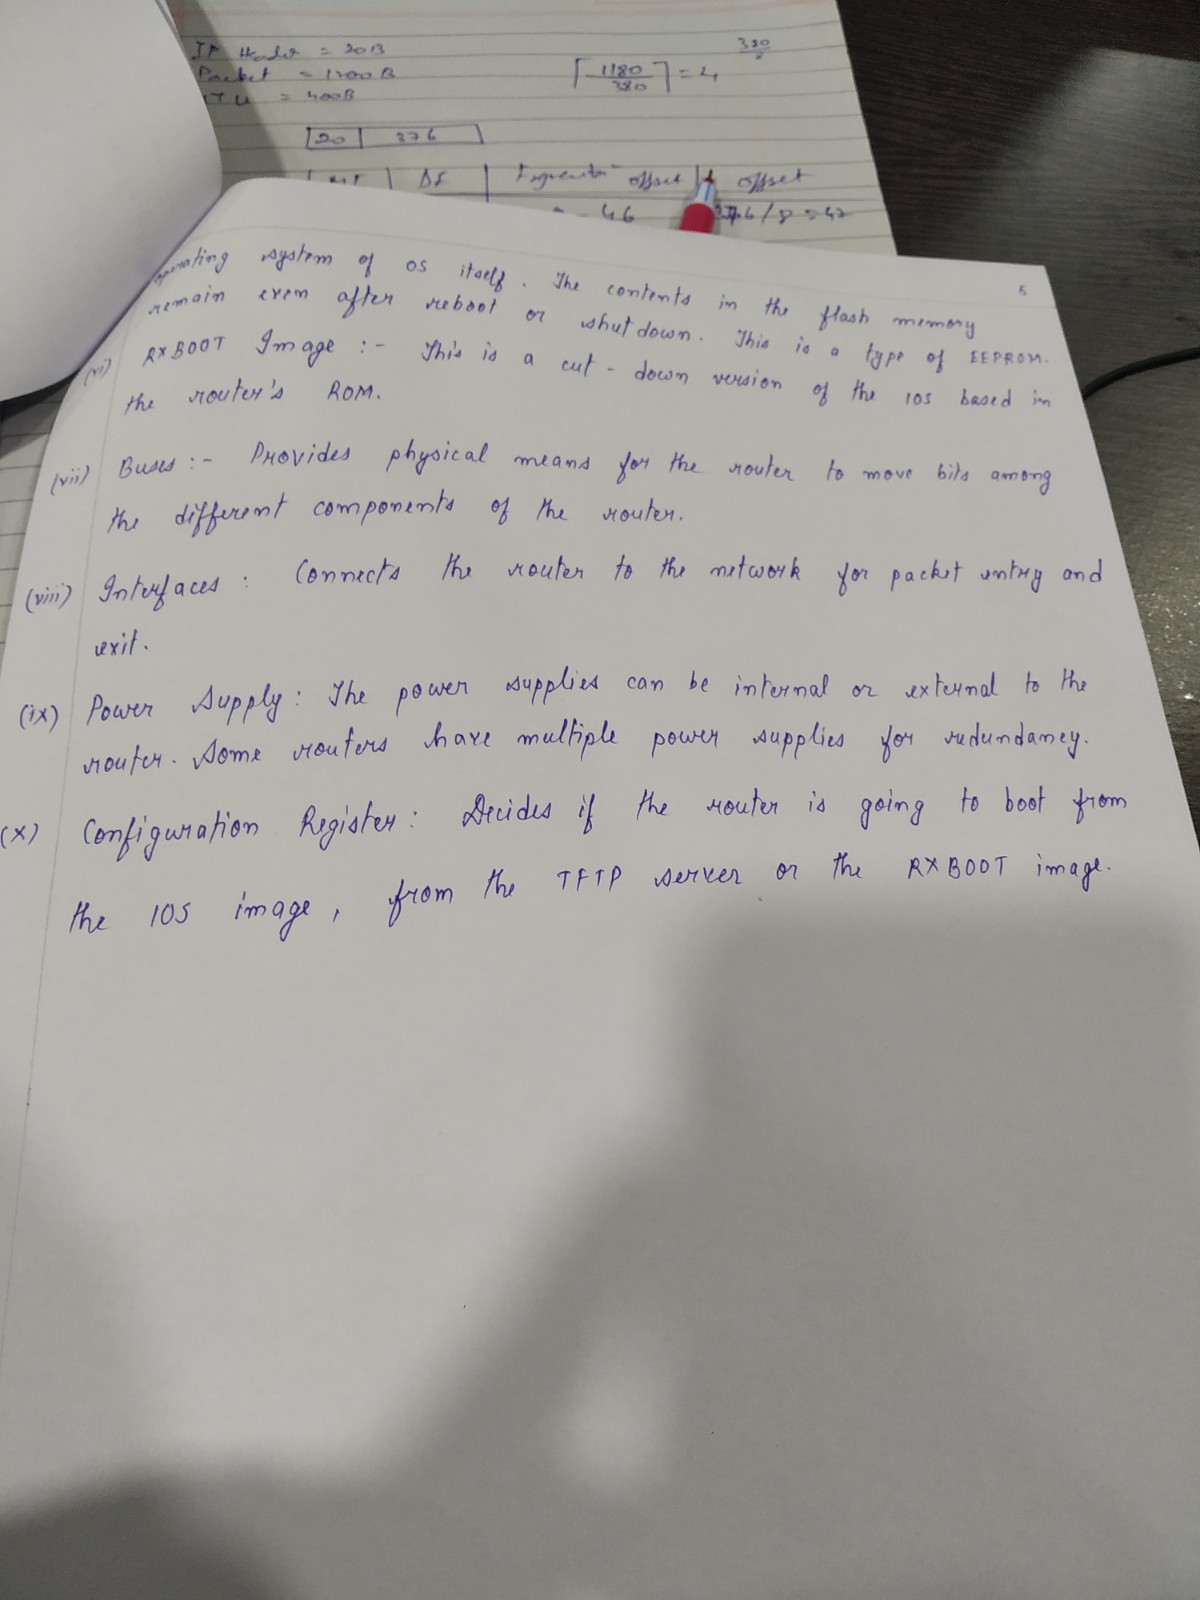 IP Header = 20B
Packet = 1200B
MTU = 400B
380
⌈1180/380⌉ = 4
20 | 376
DF | offset | offset
46
/8 = 47
5
operating system of OS itself. The contents in the flash memory
remain even after reboot or shut down. This is a type of EEPROM.
(vi) RXBOOT Image :- This is a cut-down version of the IOS based in
the router's ROM.
(vii) Buses :- Provides physical means for the router to move bits among
the different components of the router.
(viii) Interfaces : Connects the router to the network for packet entry and
exit.
(ix) Power Supply : The power supplies can be internal or external to the
router. Some routers have multiple power supplies for redundancy.
(x) Configuration Register : Decides if the router is going to boot from
the IOS image, from the TFTP server or the RXBOOT image.